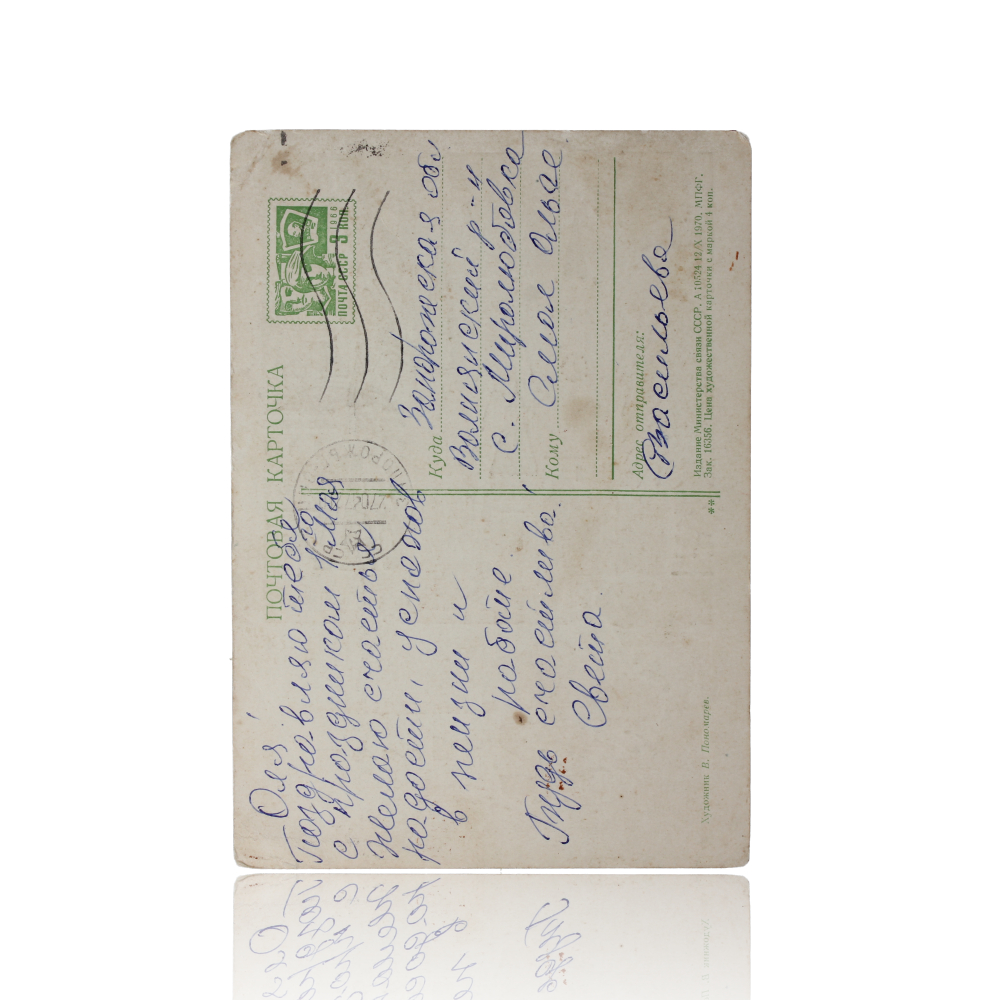 ПОЧТОВАЯ КАРТОЧКА
Оля!
Поздравляю тебя
с праздником 1го Мая
Желаю счастья
радости, успехов
в жизни и
работе.
Будь счастлива!
Света.
Художник В. Пономарев.
1966
3 КОП.
ПОЧТА СССР
Куда Запорожская обл
р-н
с. Миролюбовка
Кому
Адрес отправителя:
Васильева
Издание Министерства связи СССР. А 10524 12/X 1970. МПФГ.
Зак. 16356. Цена художественной карточки с маркой 4 коп.
**